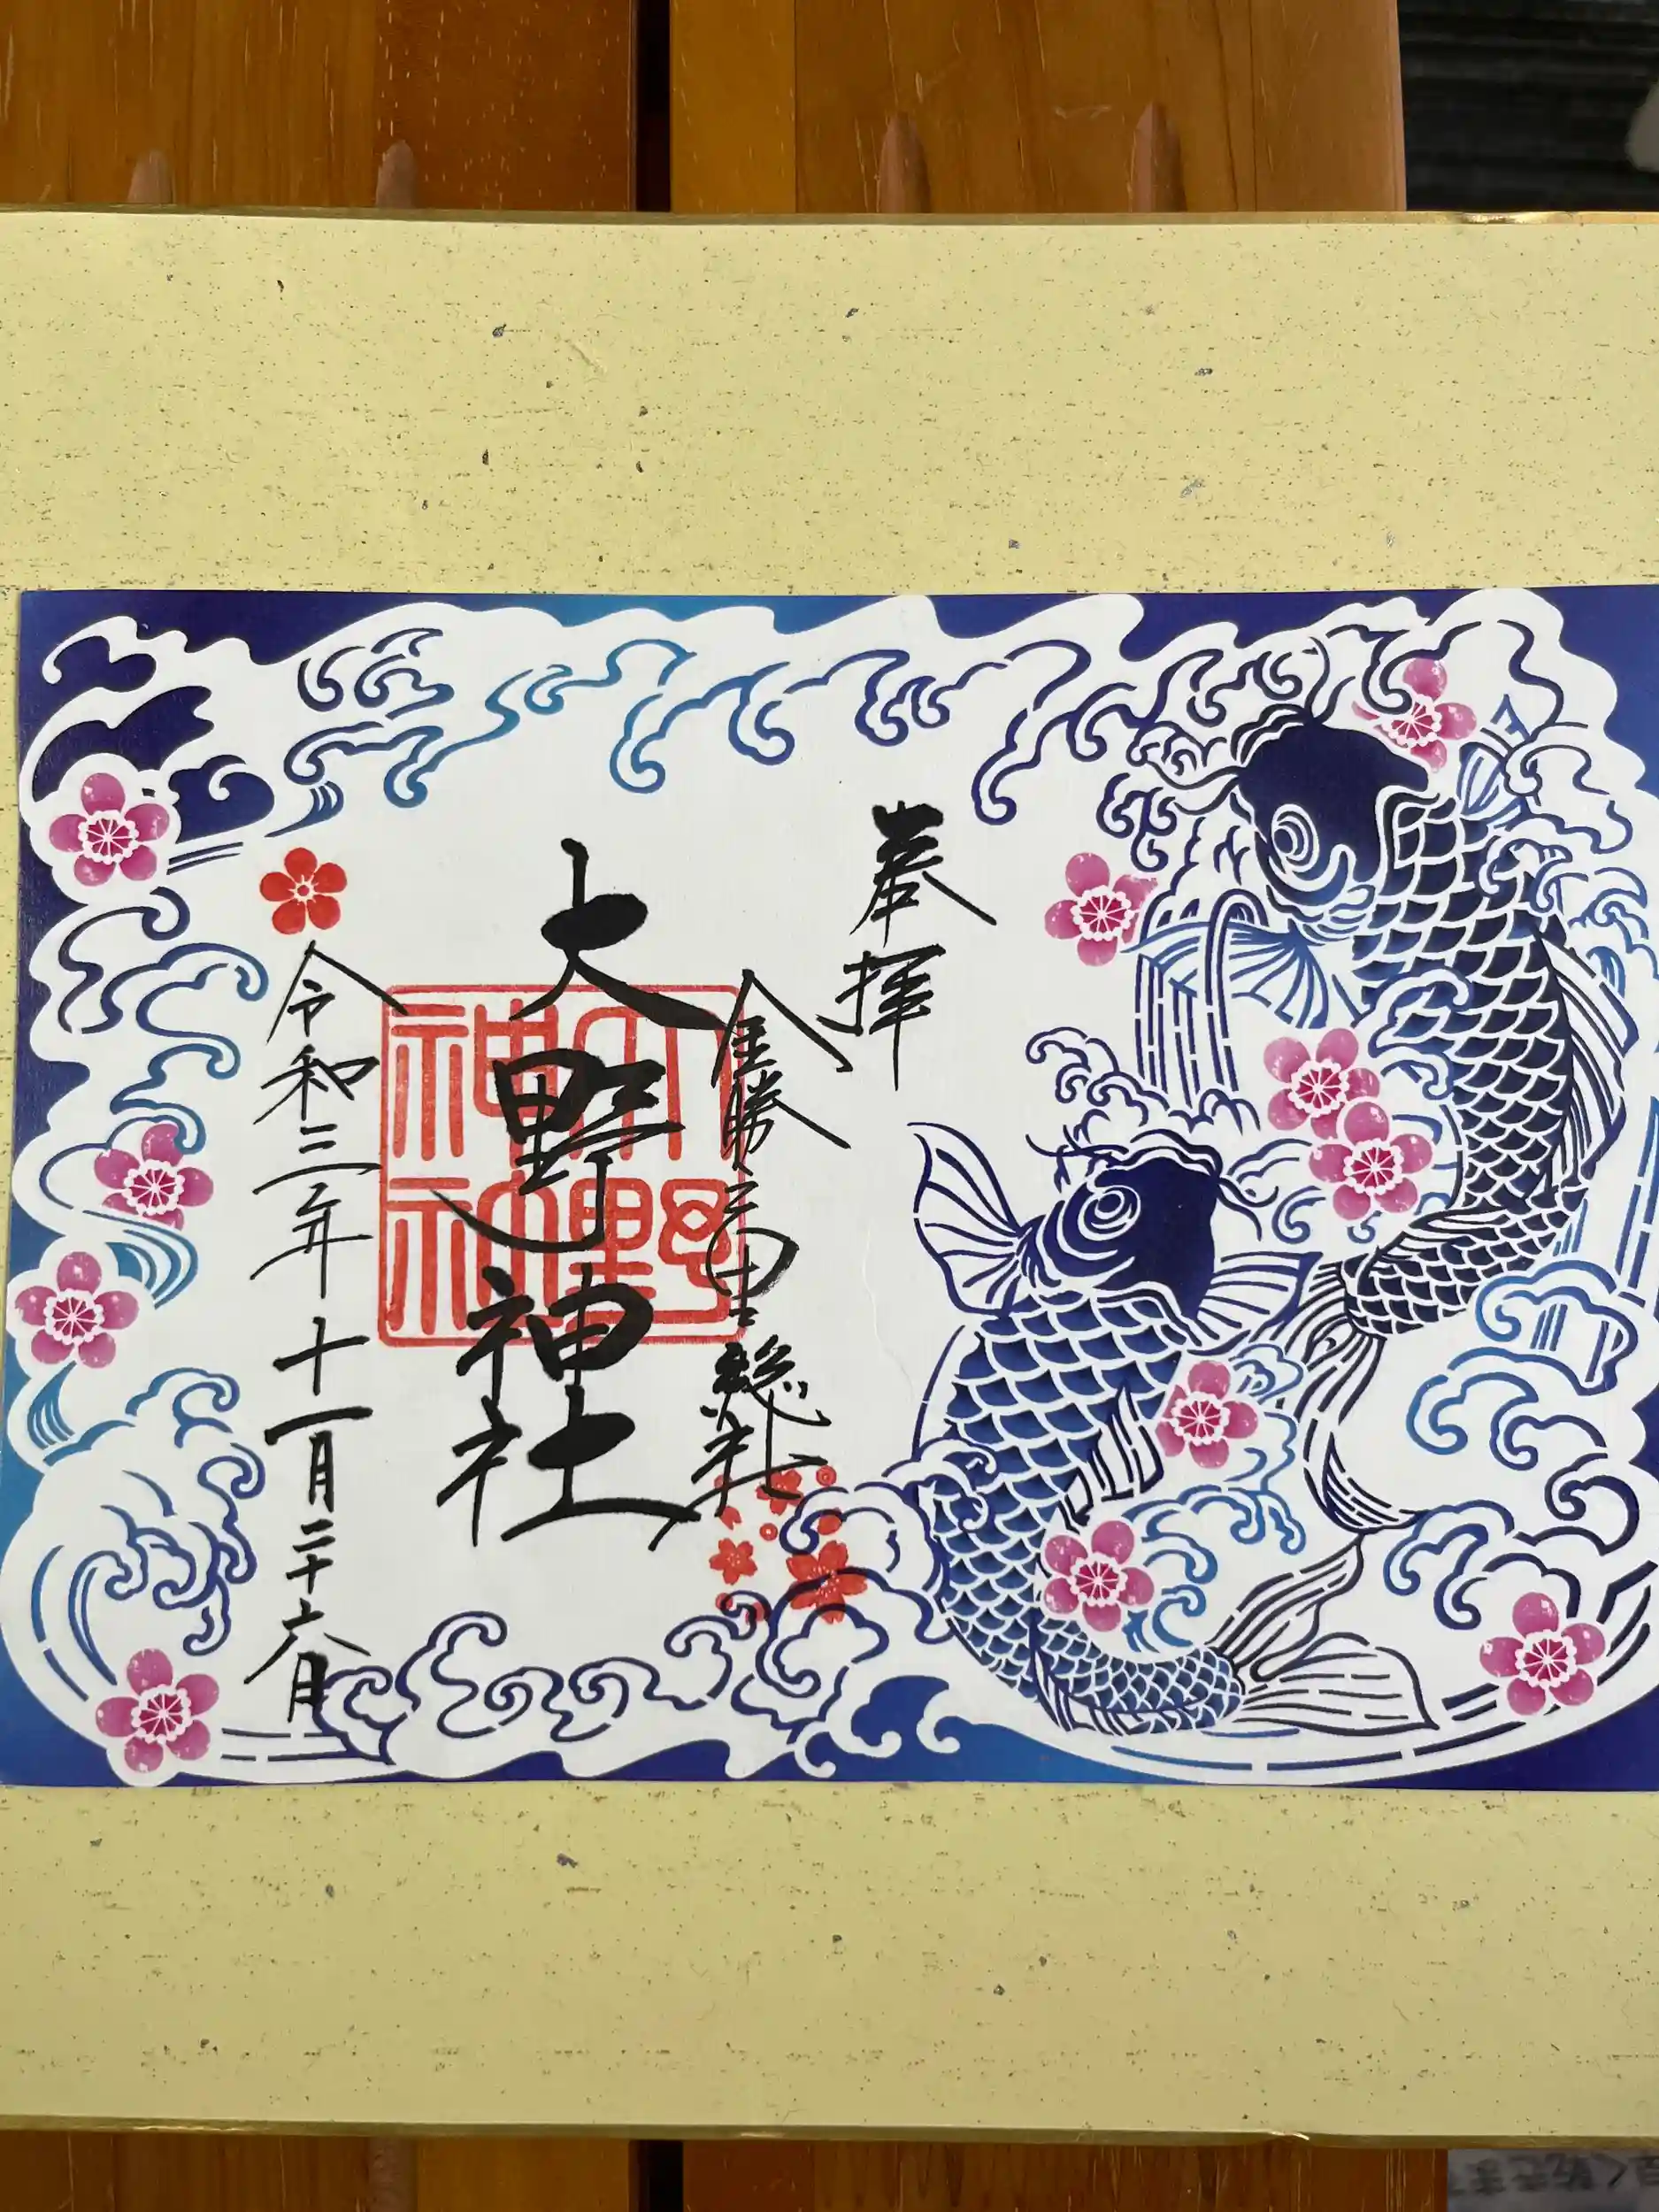 奉拝
金勝 総社
大野神社
大野神社
令和三年十一月二十六日